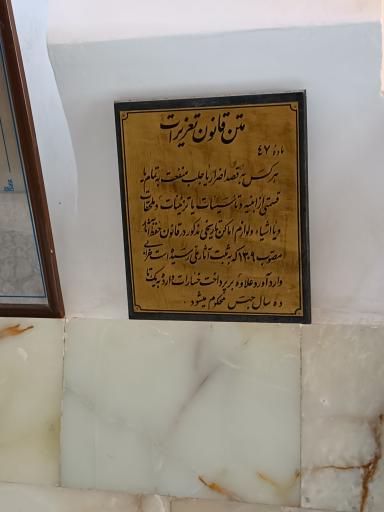 متن قانون تعزیرات
مادهٔ ٤٧
هرکس به قصد اضرار یا جلب منفعت به تمام یا
قسمتی از ابنیه و تأسیسات یا تزئینات و ملحقات
و یا اشیاء و لوازم اماکن تاریخی مذکور در قانون حفظ آثار
مصوب ۱۳۰۹ که به ثبت آثار ملی رسیده است خرابی
وارد آورد علاوه بر پرداخت خسارات وارده به یک تا
ده سال حبس محکوم میشود.